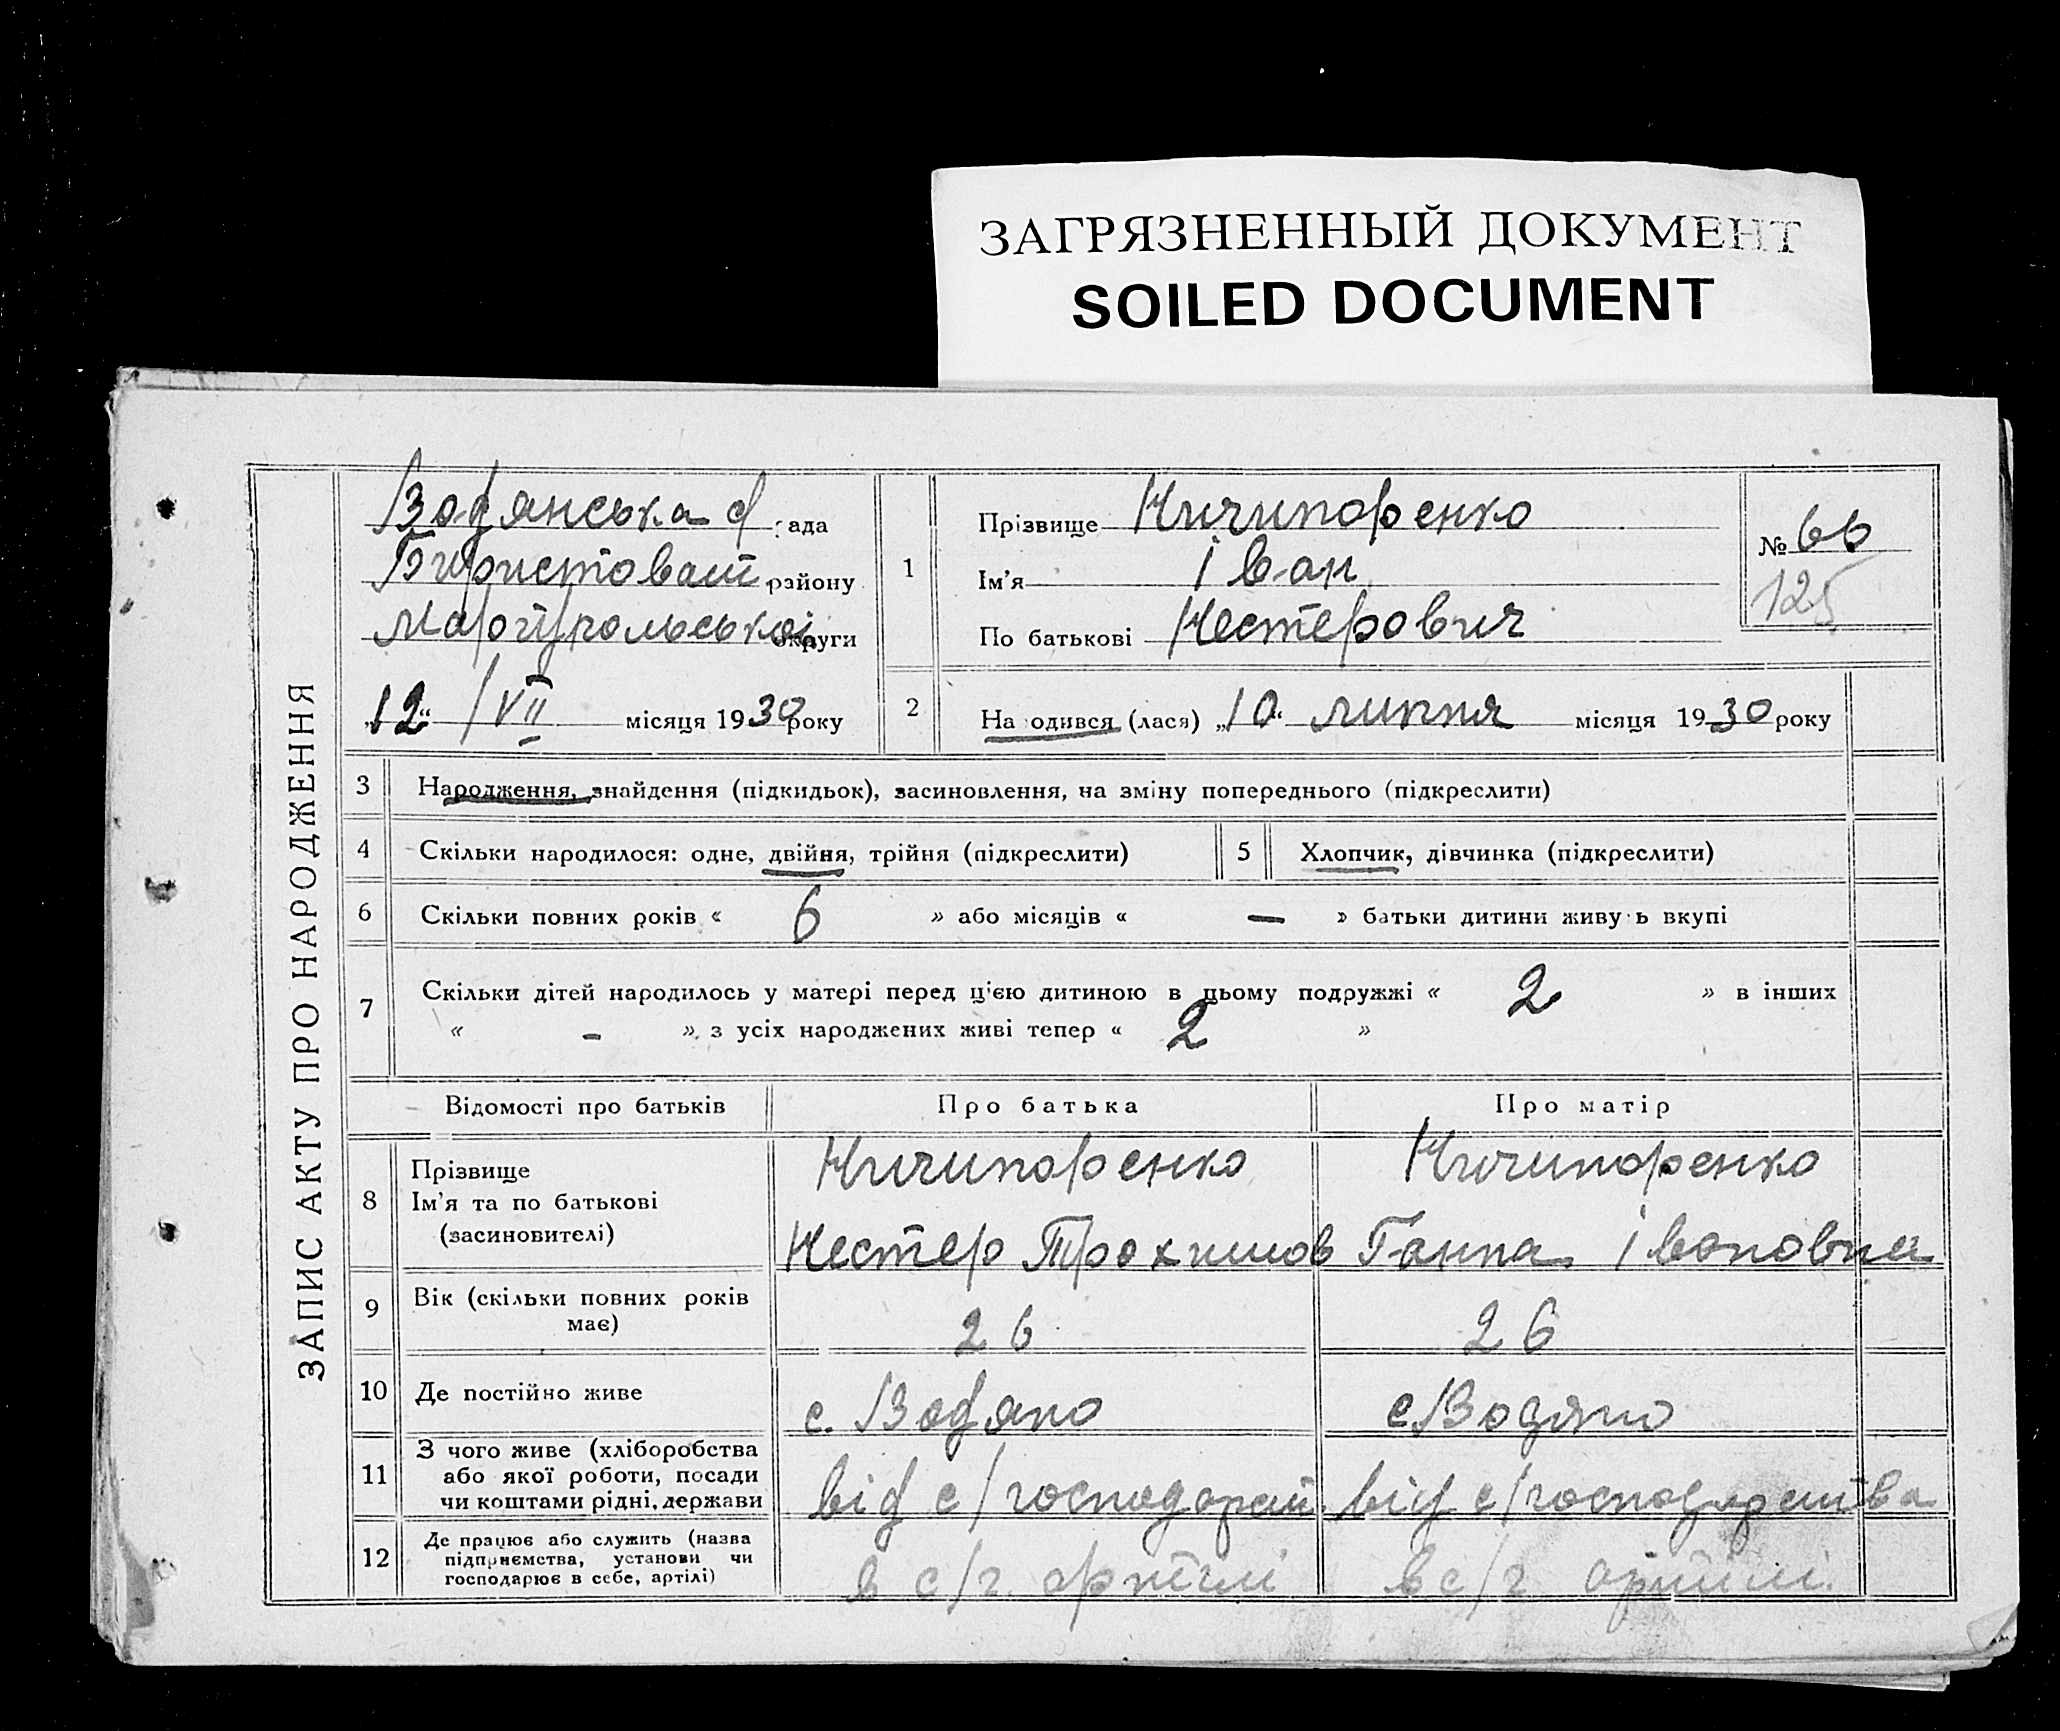 ЗАГРЯЗНЕННЫЙ ДОКУМЕНТ
SOILED DOCUMENT
ЗАПИС АКТУ ПРО НАРОДЖЕННЯ
Водянська с рада
району
Маріупольської округи
„12“ /VII місяця 1930 року
1
Прізвище Ничипоренко
Ім'я Іван
По батькові Нестерович
№ 66
125
2 На одився (лася) „10“ липня місяця 1930 року
3 Народження, знайдення (підкидьок), засиновлення, на зміну попереднього (підкреслити)
4 Скільки народилося: одне, двійня, трійня (підкреслити) 5 Хлопчик, дівчинка (підкреслити)
6 Скільки повних років « 6 » або місяців « — » батьки дитини живу ь вкупі
7 Скільки дітей народилось у матері перед цією дитиною в цьому подружжі « 2 » в інших
« - » з усіх народжених живі тепер « 2 »
Відомості про батьків Про батька Про матір
8 Прізвище Ничипоренко Ничипоренко
Ім'я та по батькові
(засиновителі) Нестер Трохимов Ганна Івановна
9 Вік (скільки повних років має) 26 26
10 Де постійно живе с. Водяно с Водяно
11 З чого живе (хліборобства
або якої роботи, посади
чи коштами рідні, держави від с/господарст від с/господарства
12 Де працює або служить (назва
підприємства, установи чи
господарює в себе, артілі) в с/г. артілі в с/г артілі.